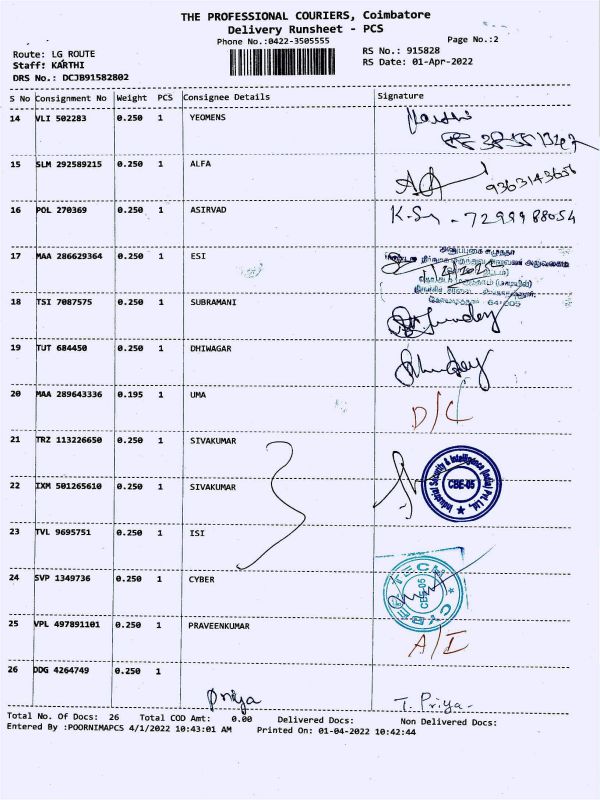 THE PROFESSIONAL COURIERS, Coimbatore
Delivery Runsheet - PCS
Phone No.:0422-3505555 Page No.:2
Route: LG ROUTE RS No.: 915828
Staff: KARTHI RS Date: 01-Apr-2022
DRS No.: DCJB91582802
S No Consignment No Weight PCS Consignee Details Signature
14 VLI 502283 0.250 1 YEOMENS
15 SLM 292589215 0.250 1 ALFA
9363143656
16 POL 270369 0.250 1 ASIRVAD K.S - 7299988054
17 MAA 286629364 0.250 1 ESI
641005
18 TSI 7087575 0.250 1 SUBRAMANI
19 TUT 684450 0.250 1 DHIWAGAR
20 MAA 289643336 0.195 1 UMA D/C
21 TRZ 113226650 0.250 1 SIVAKUMAR
Industrial Security & Intelligence (India) Pvt. Ltd.,
22 IXM 501265610 0.250 1 SIVAKUMAR CBE-05
23 TVL 9695751 0.250 1 ISI
24 SVP 1349736 0.250 1 CYBER CYBER TECH CBE-05
25 VPL 497891101 0.250 1 PRAVEENKUMAR A/I
26 DDG 4264749 0.250 1
Priya T. Priya
Total No. Of Docs: 26 Total COD Amt: 0.00 Delivered Docs: Non Delivered Docs:
Entered By :POORNIMAPCS 4/1/2022 10:43:01 AM Printed On: 01-04-2022 10:42:44